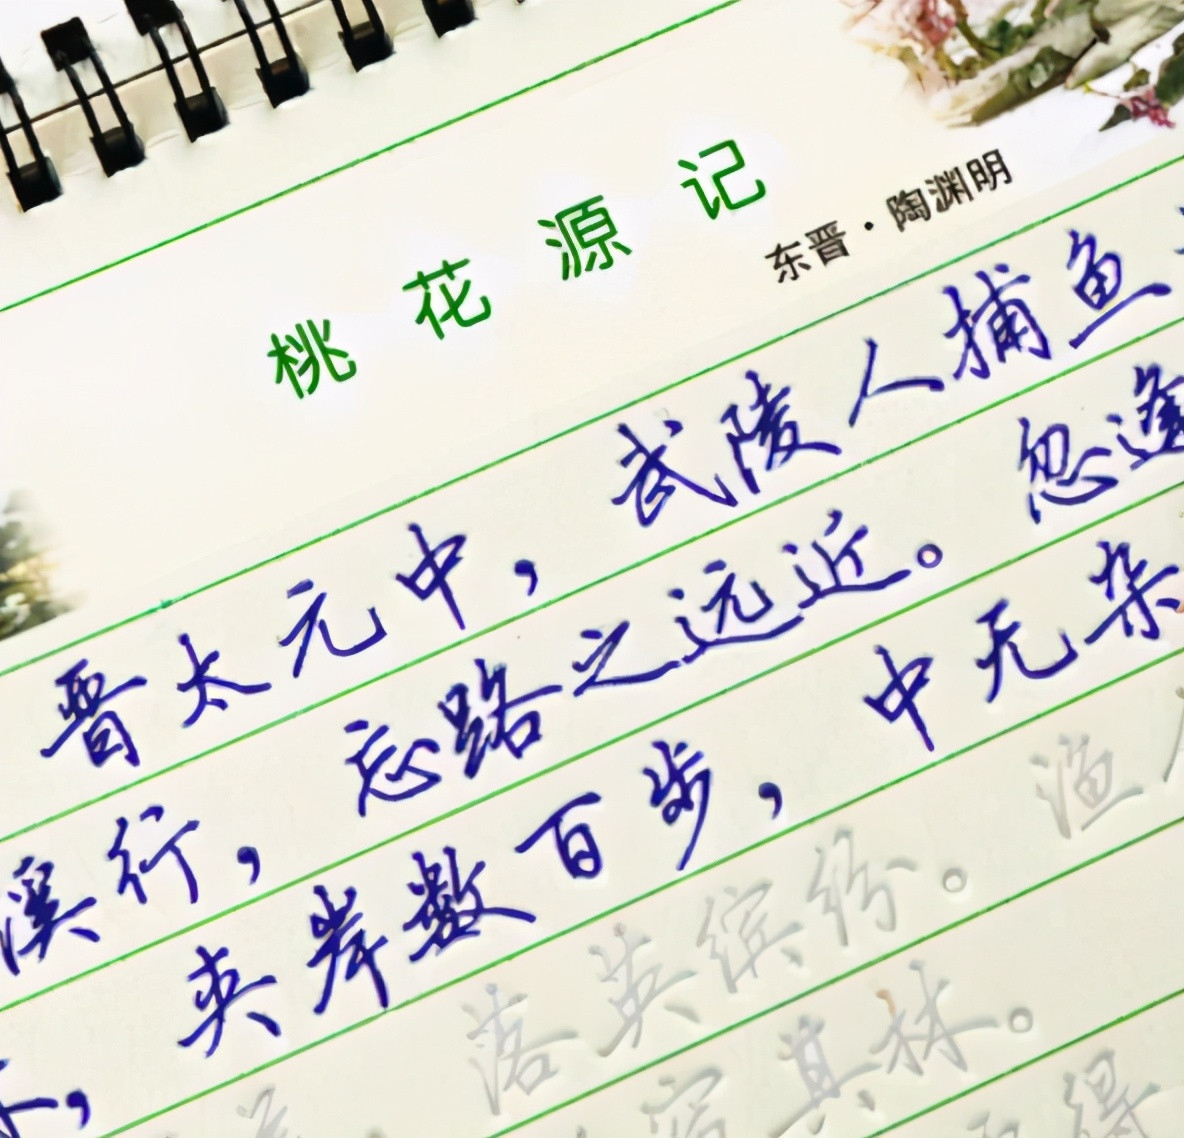 桃花源记
东晋·陶渊明
晋太元中，武陵人捕鱼
溪行，忘路之远近。忽逢
，夹岸数百步，中无杂
落英缤纷。渔
其林。
得